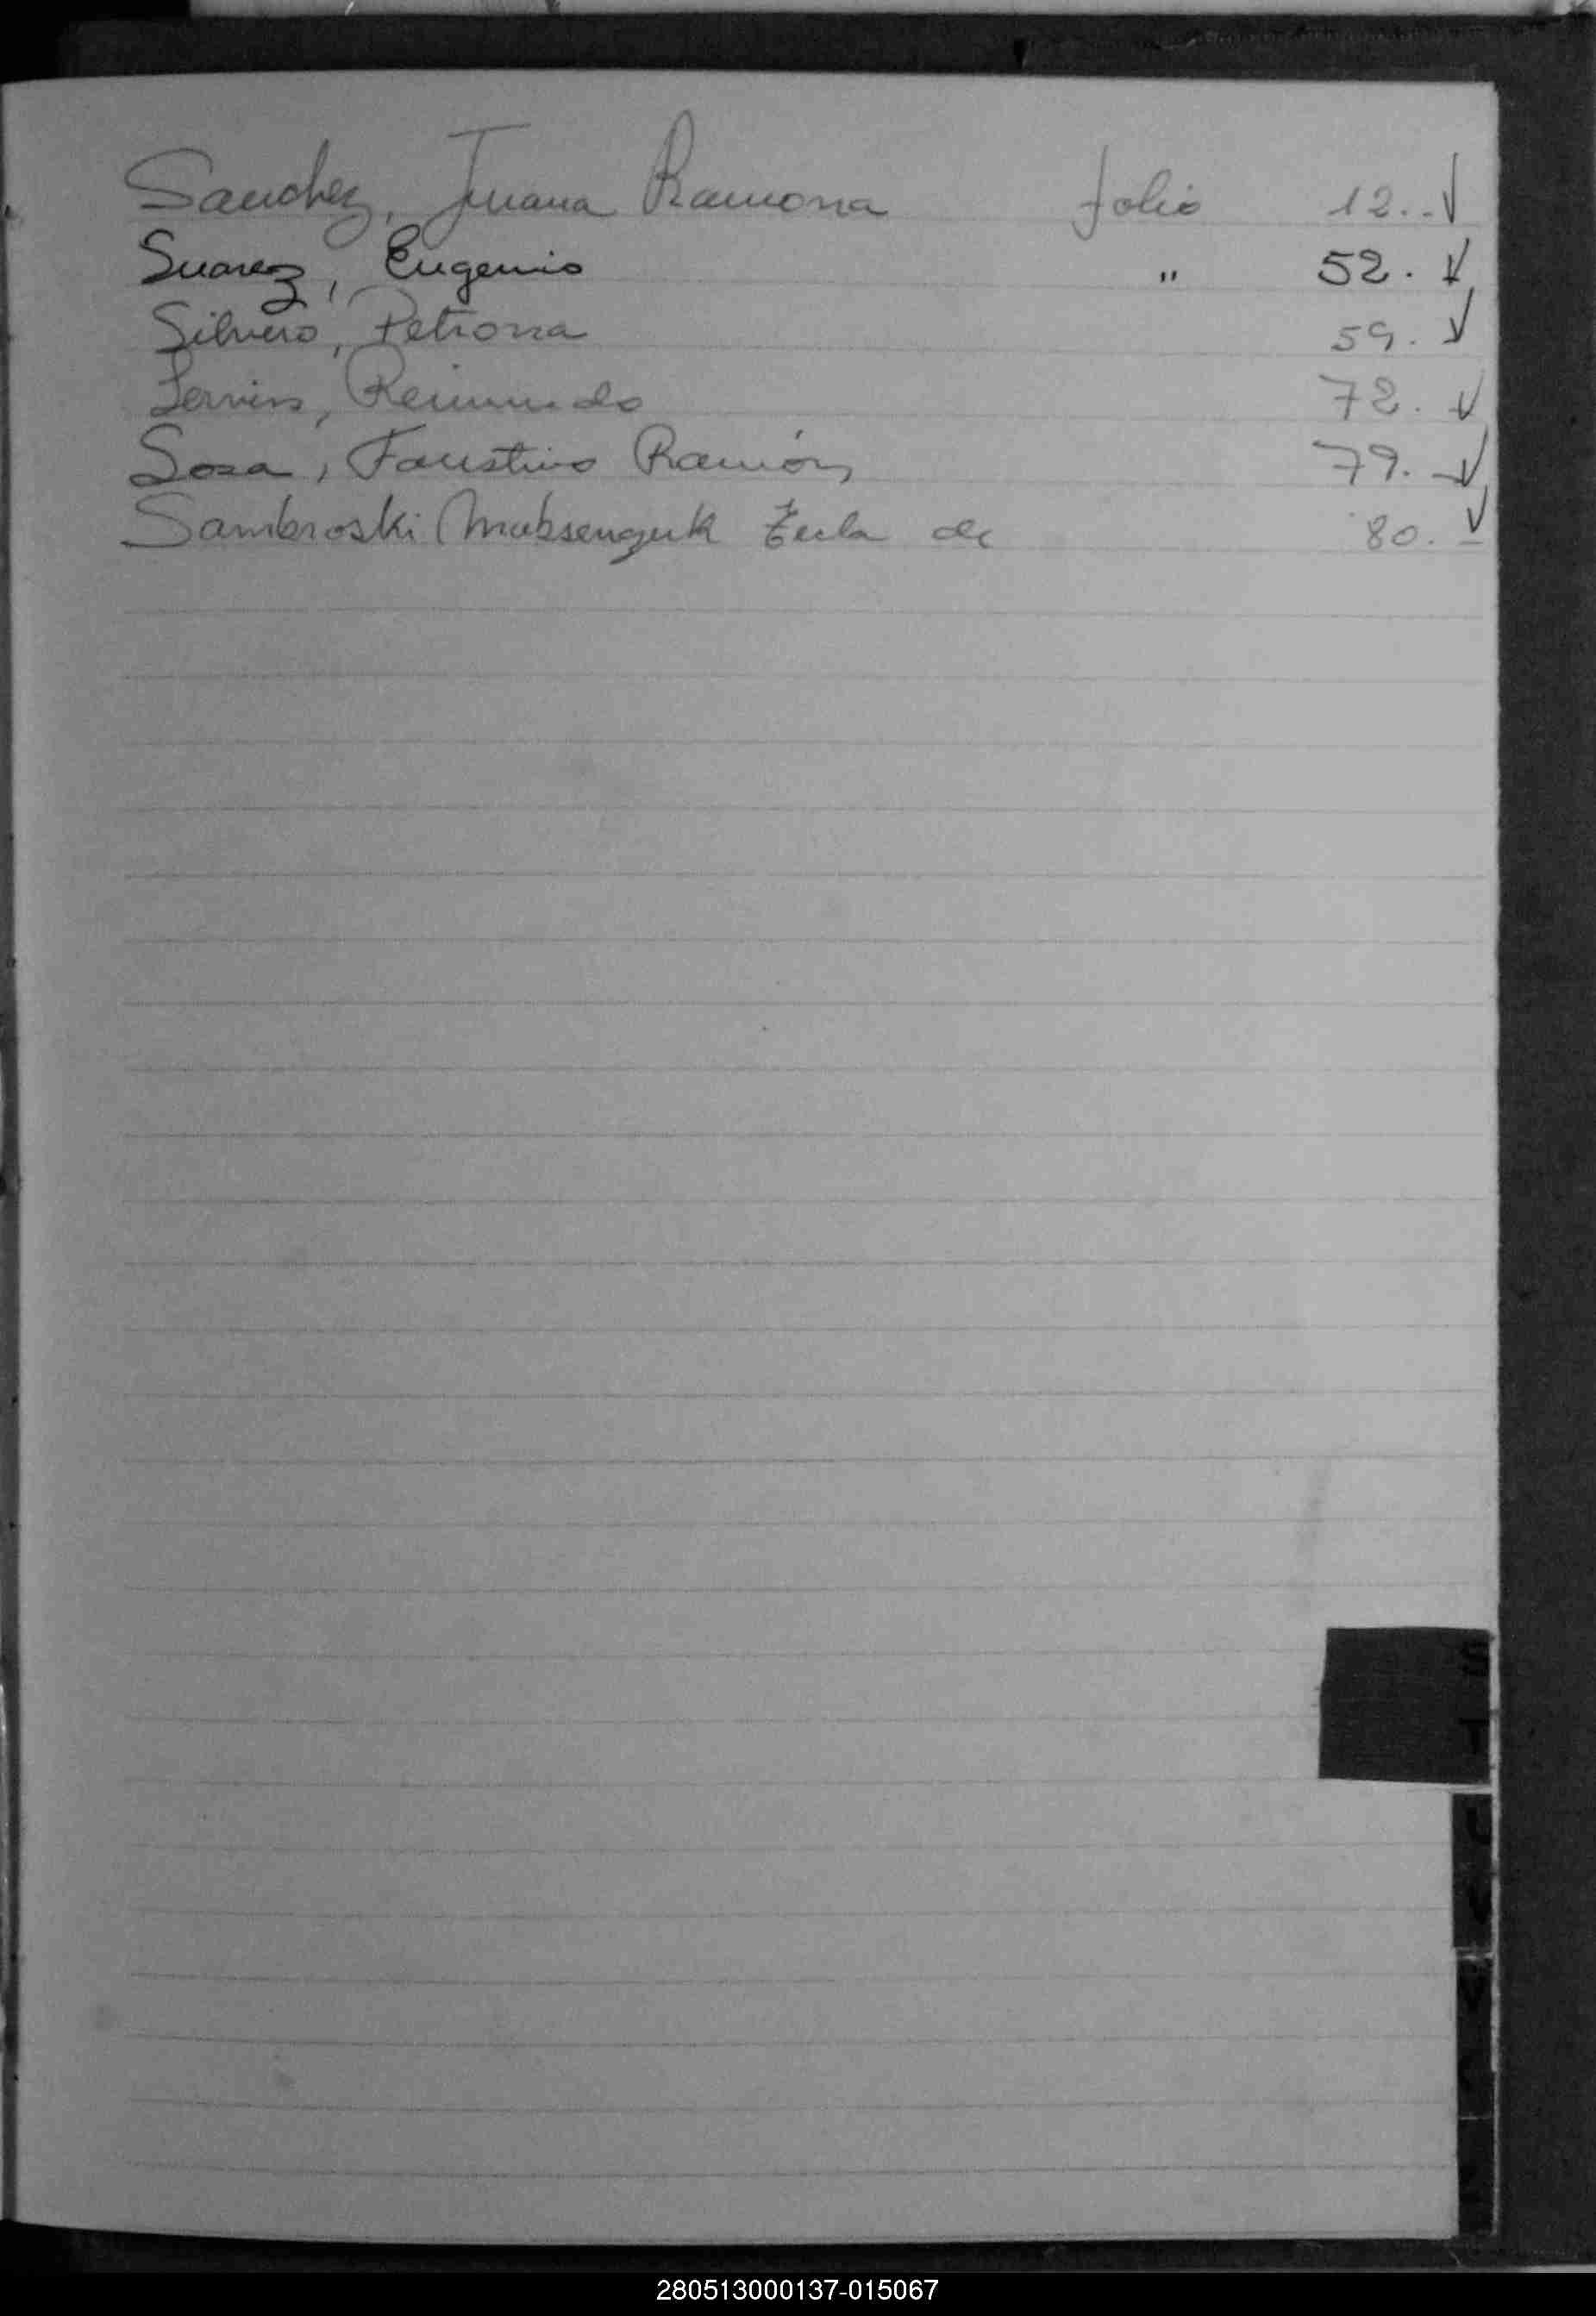 Sanchez, Juana Ramona folio 12..
Suarez, Eugenio " 52.
Silvero, Petrona 59.
Servin, Reimundo 72.
Sosa, Faustino Ramón 79.
Sambroski de 80.
S
T
U
V
280513000137-015067